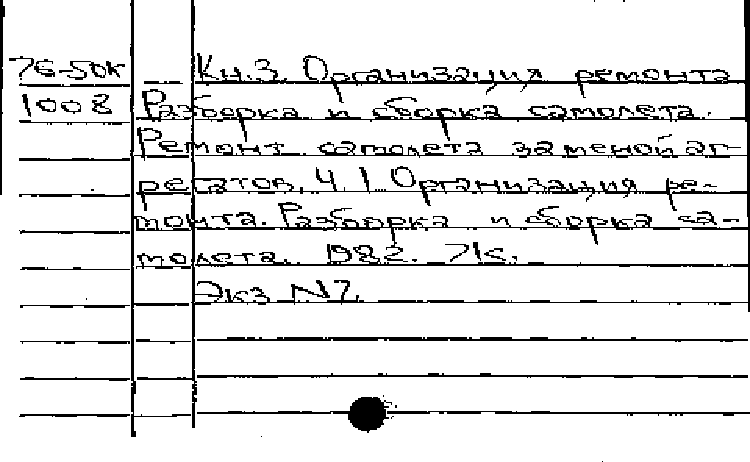 76-50к Кн.3. Организация ремонта
1008 Разборка и сборка самолета.
Ремонт самолета заменой аг-
регатов. Ч 1 Организация ре-
монта. Разборка и сборка са-
молета. 1982. 71с.
Экз N2